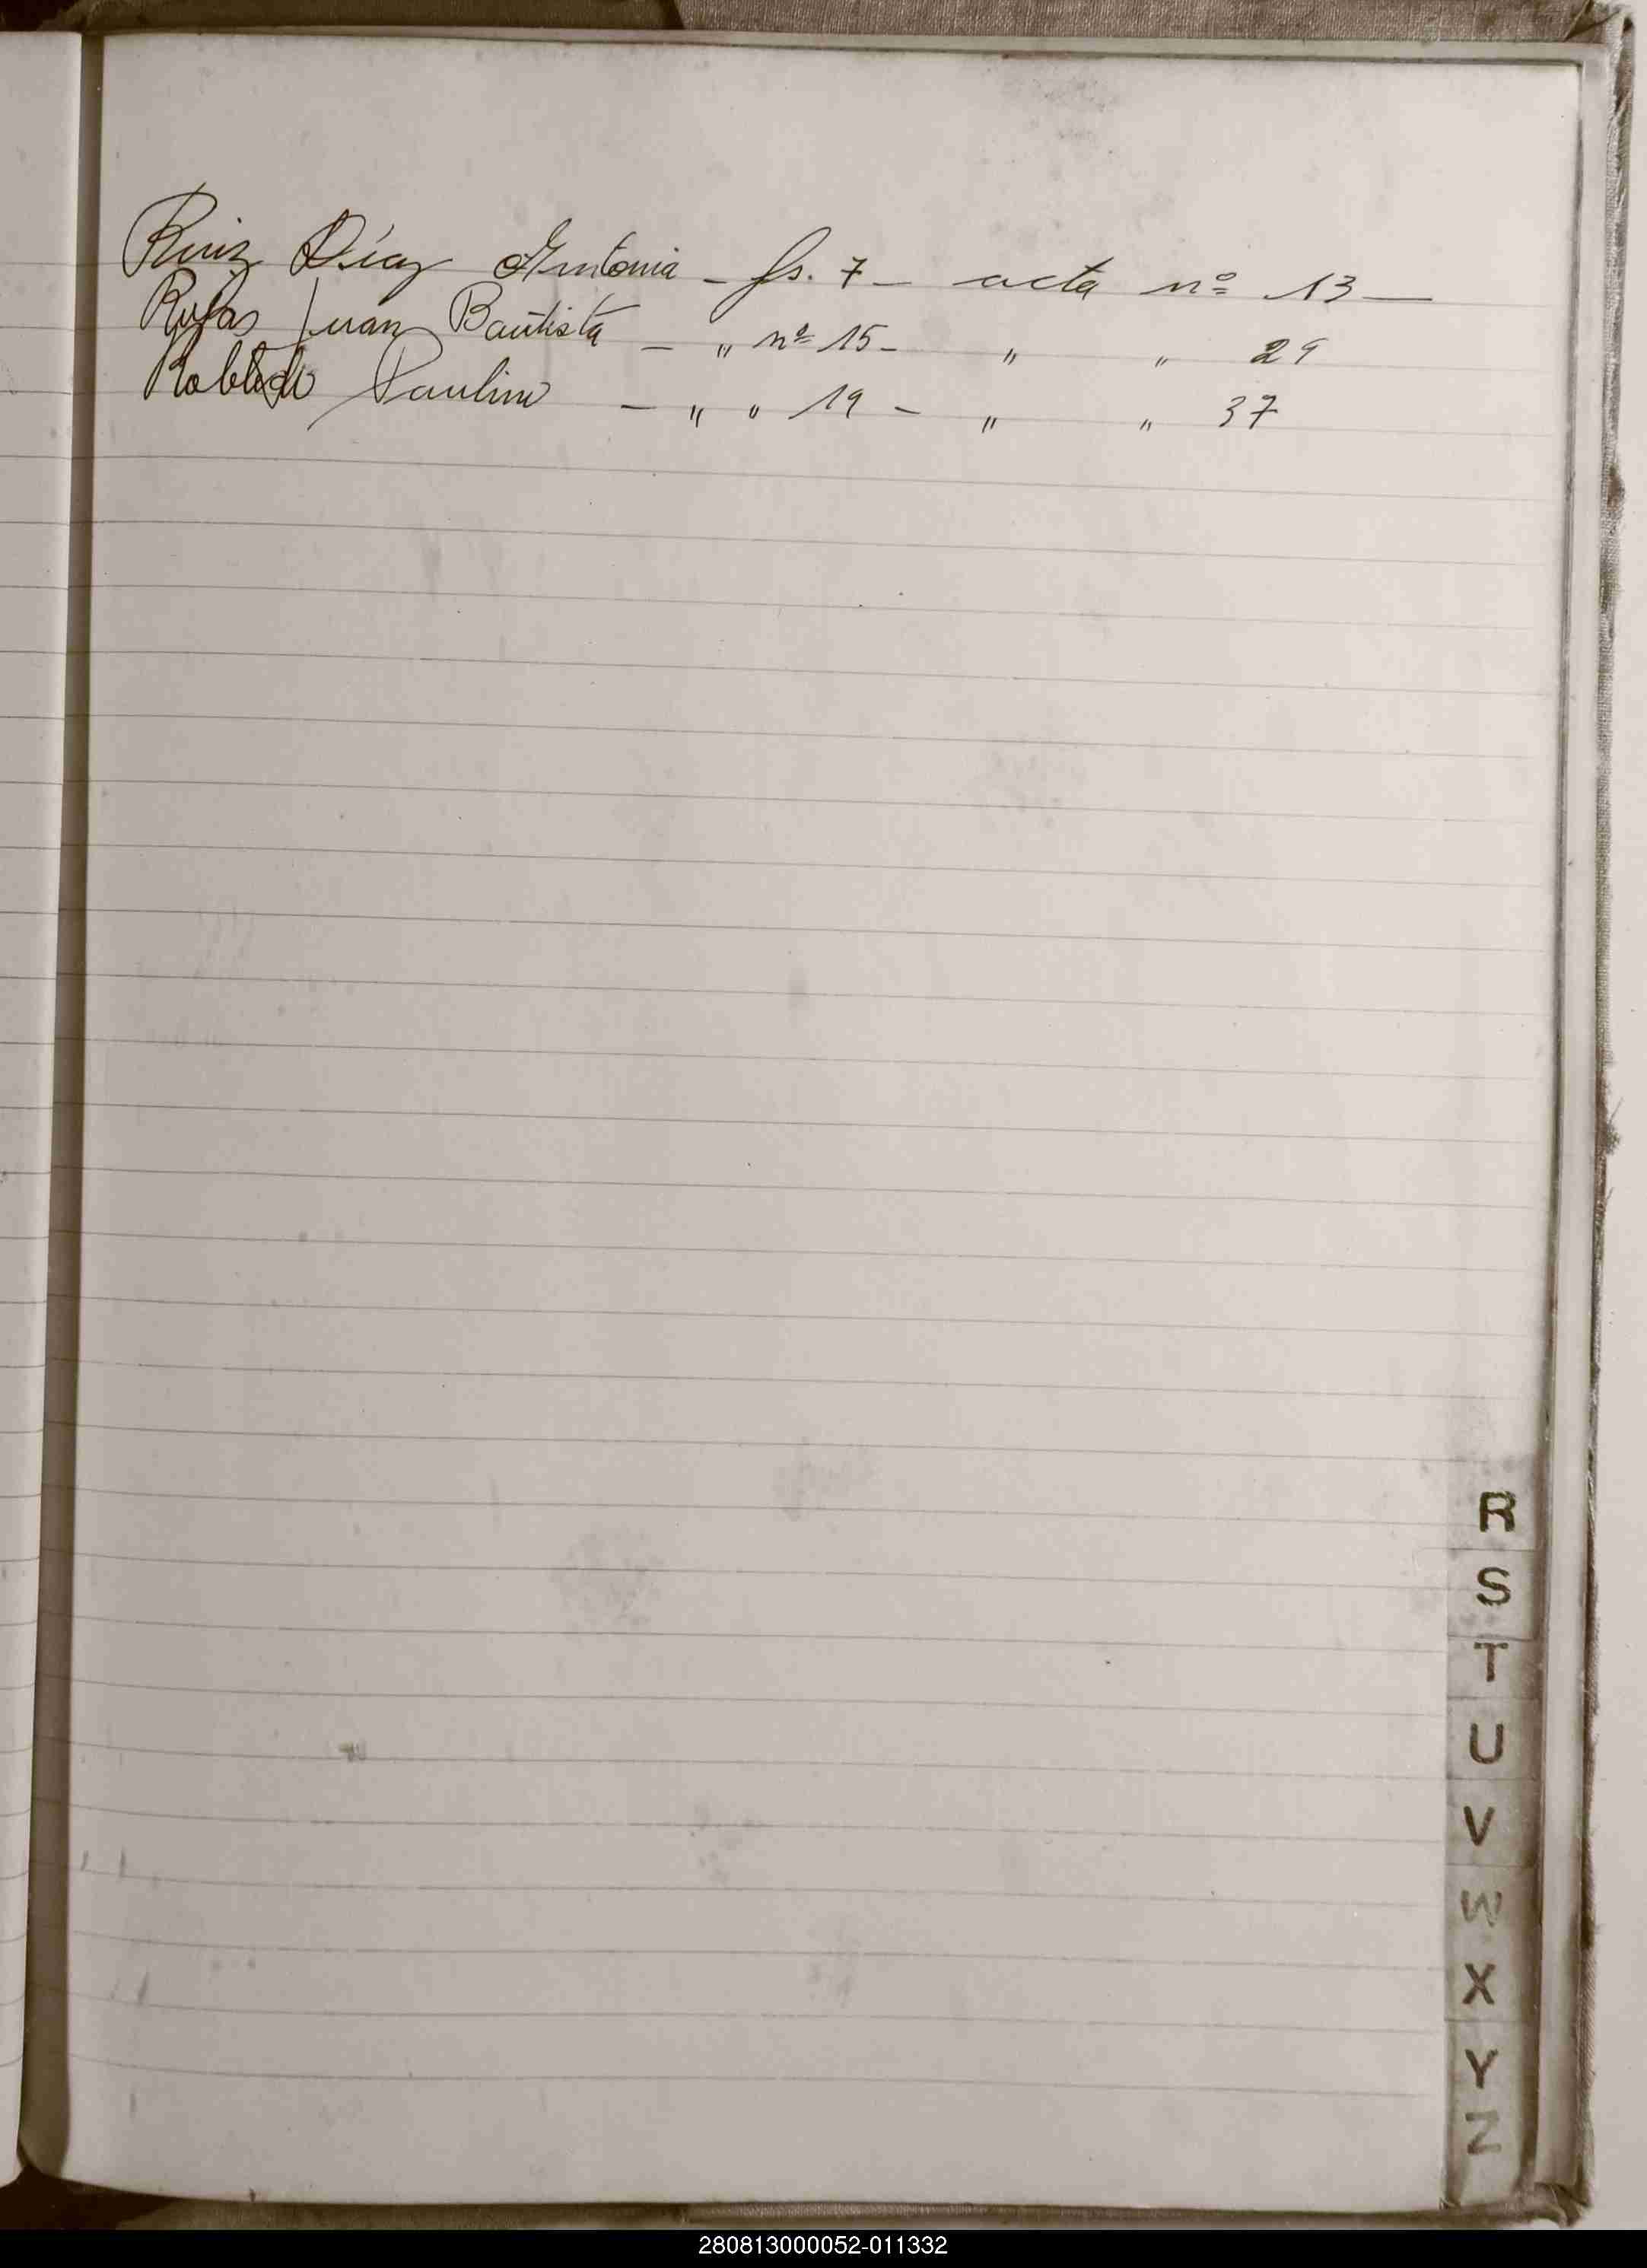 Ruiz Díaz Antonia - fs. 7 - acta nº 13 -
Juan Bautista - " nº 15 - " " 29
Robledo Paulino - " " 19 - " " 37
R
S
T
U
V
W
X
Y
Z
280813000052-011332